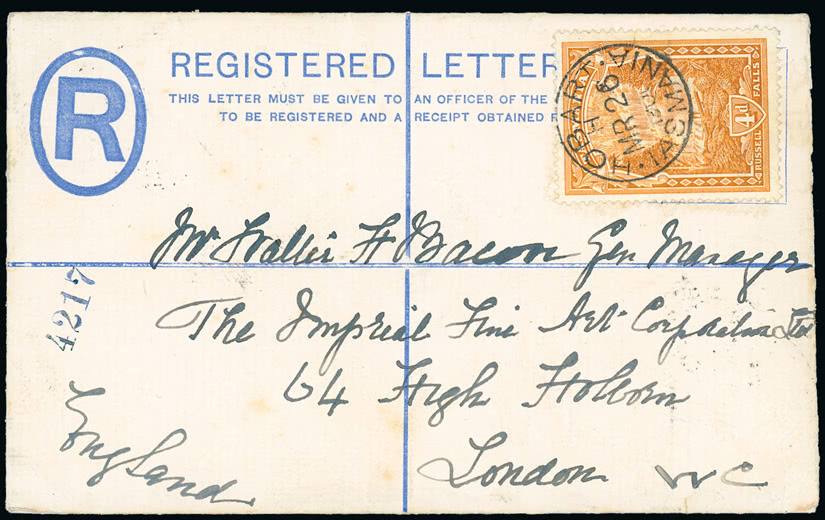 R
REGISTERED LETTER
THIS LETTER MUST BE GIVEN TO AN OFFICER OF THE
TO BE REGISTERED AND A RECEIPT OBTAINED F
HOBART · TASMANIA
H
MR 26
4d
RUSSELL FALLS
Mr Walter H Bacon Gen Manager
The Imperial Fine Art Corporation Ltd
64 High Holborn
London W C
England
4217